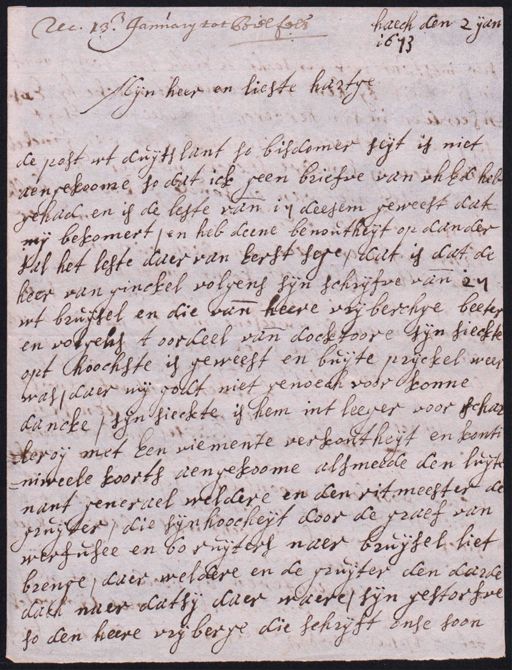 Rec. 13n January tot
haech den 2 yan
1673
Myn heer en lieste hartye
de post wt duytslant so bisdomer seyt is niet
aengekoome so dat ick geen briefve van heb
gehad en is de leste van 14 deesem geweest dat
my bekomert / en heb deene benoutheyt op dander
sal het leste daer van kerst sege / dat is dat de
heer van ginckel volgens syn schryfve van 24
wt bruysel en die van heere vryberghe beeter
en volgens t oordeel van docktoore syn sieckte
opt hoochste is geweest en buyte pryckel weer
was / daer wy godt niet genoech voor konne
dancke / syn sieckte is hem int leeger voor schar
leroy met een verkoutheyt en konti
nuweele koorts aengekoome alsmeede den luyte
nant generael weldere en den ritmeester de
gruyter / die syn hoocheyt door de graef van
en ruyters naer bruysel liet
brenge / daer weldere en de gruyter den darde
dach naer datsy daer waere / syn gestorfve
so den heere vryberge die schryft ense soon